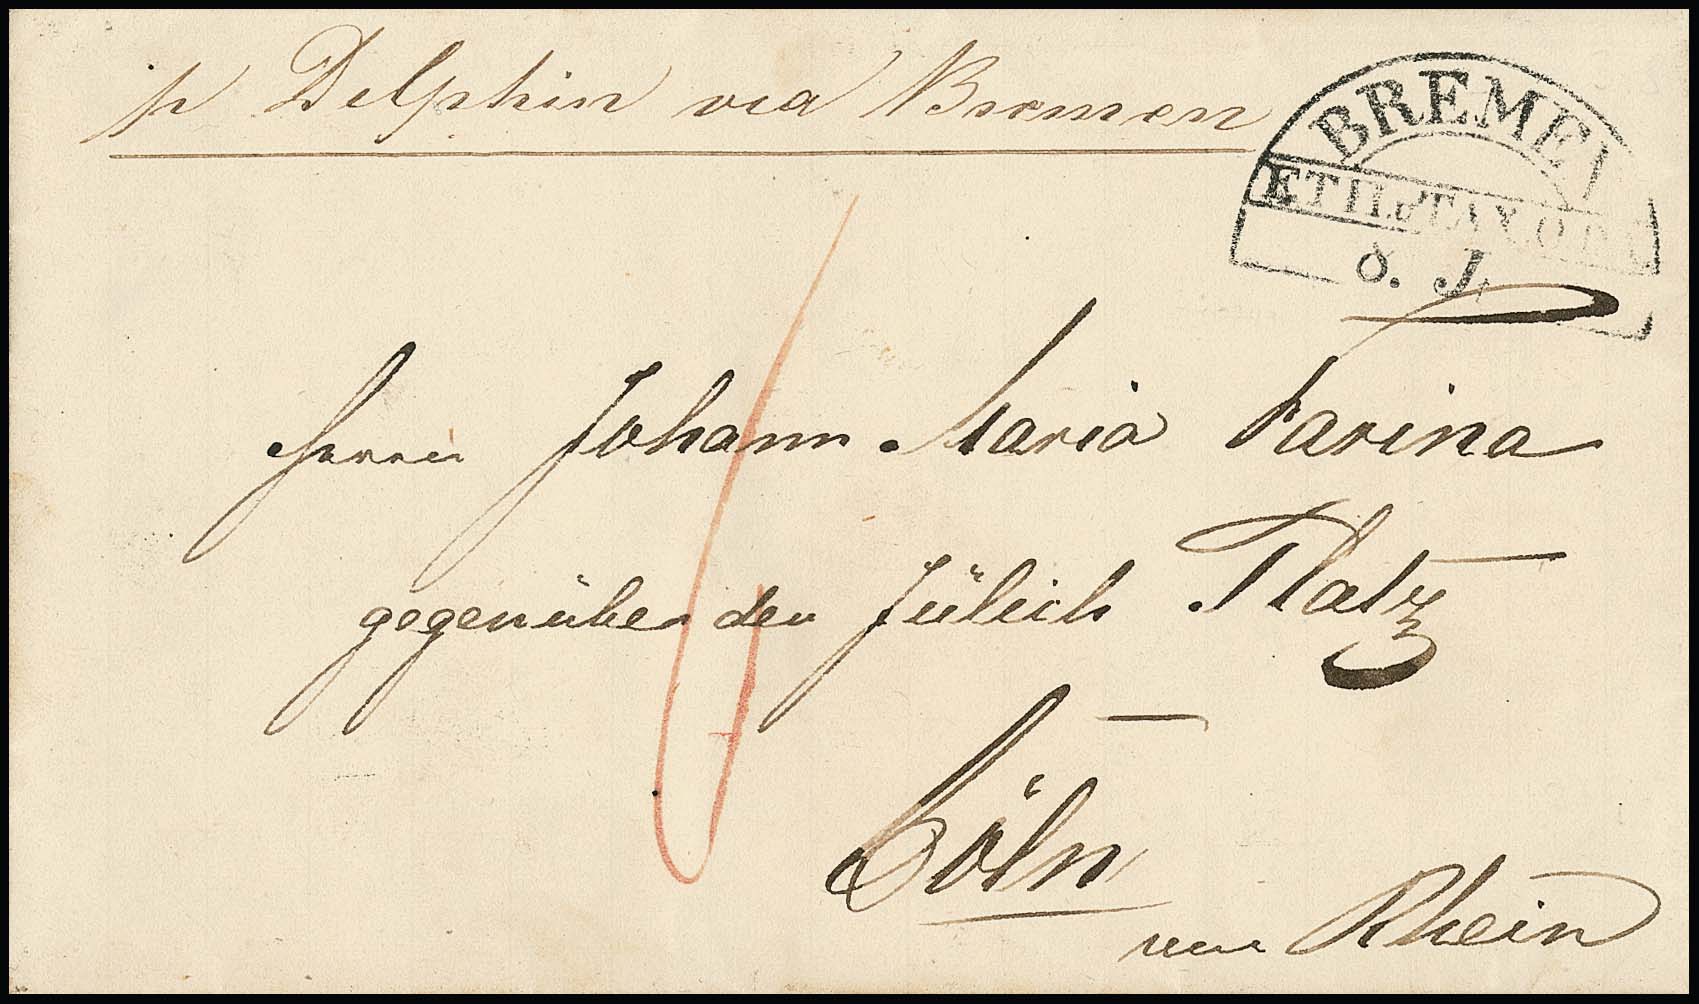 p Delphin via Bremen
BREME
ETH.&TAX.O.P.A
8. J.
Herrn Johann Maria Farina
gegenüber den Jülich Platz
Cöln
am Rhein
6